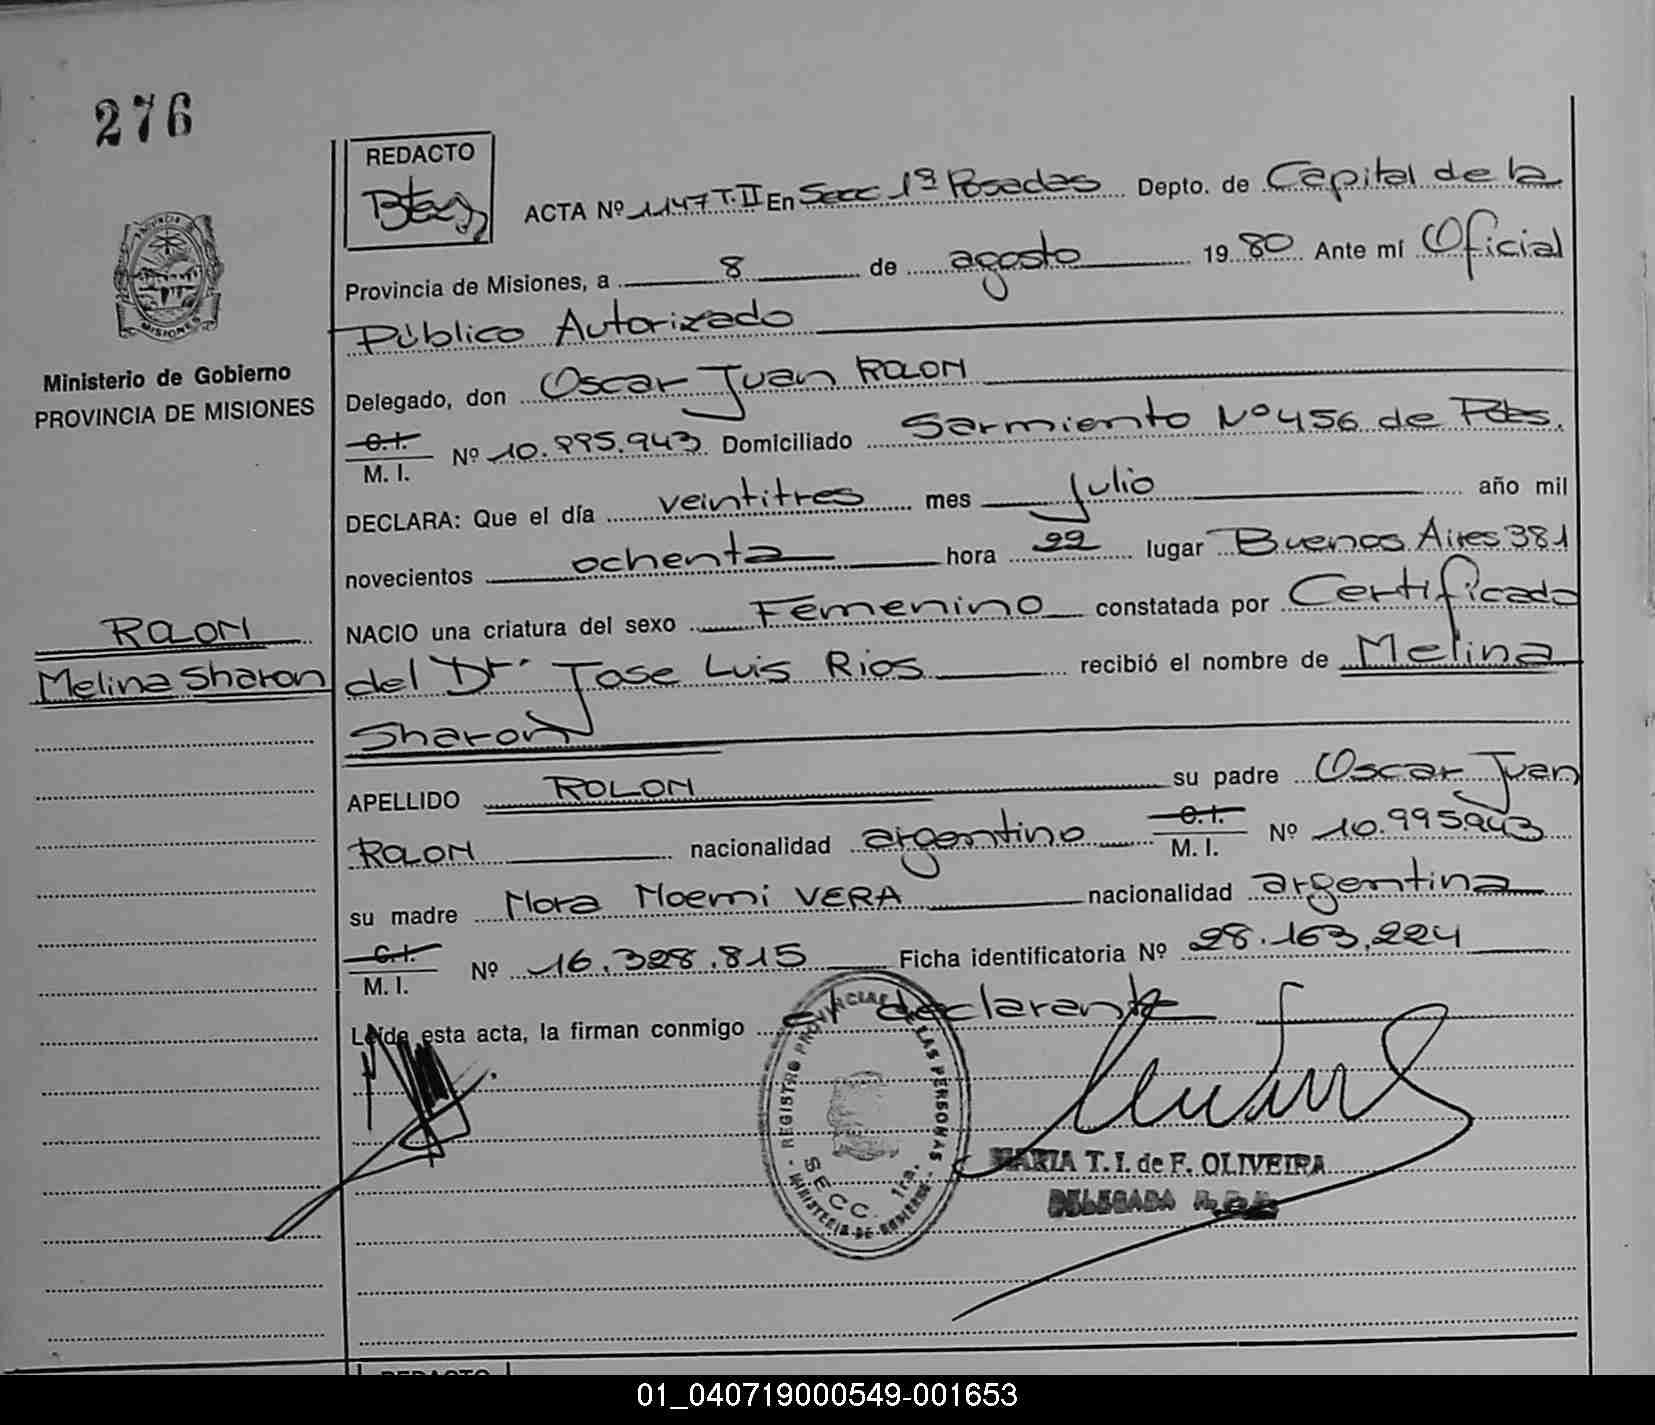 276
REDACTO
ACTA Nº 1147 T.II En Secc 1ª Posadas Depto. de Capital de la
Provincia de Misiones, a 8 de agosto 1980 Ante mí Oficial
Público Autorizado
MISIONES
Ministerio de Gobierno
PROVINCIA DE MISIONES
Delegado, don Oscar Juan ROLON
C.I.
M. I. Nº 10.995.943 Domiciliado Sarmiento Nº 456 de Pdas.
DECLARA: Que el día veintitres mes Julio año mil
novecientos ochenta hora 22 lugar Buenos Aires 381
NACIO una criatura del sexo Femenino constatada por Certificado
ROLON
Melina Sharon
del Dr. Jose Luis Rios recibió el nombre de Melina
Sharon
APELLIDO ROLON su padre Oscar Juan
ROLON nacionalidad argentino C.I. M. I. Nº 10.995.943
su madre Nora Noemi VERA nacionalidad argentina
C.I.
M. I. Nº 16.328.815 Ficha identificatoria Nº 28.163.224
Leída esta acta, la firman conmigo el declarante
REGISTRO PROVINCIAL DE LAS PERSONAS
SECC. 1ra.
MINISTERIO DE GOBIERNO
MARIA T. I. de F. OLIVEIRA
DELEGADA
REDACTO
01_040719000549-001653